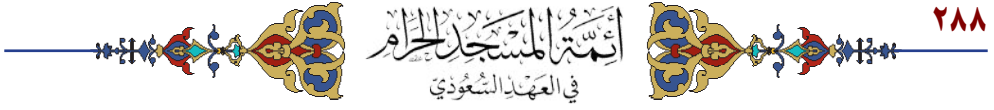 ٢٨٨
أَئِمَّةُ المَسْجِدِ الحَرَامِ
فِي العَهْدِ السُّعُودِيِّ